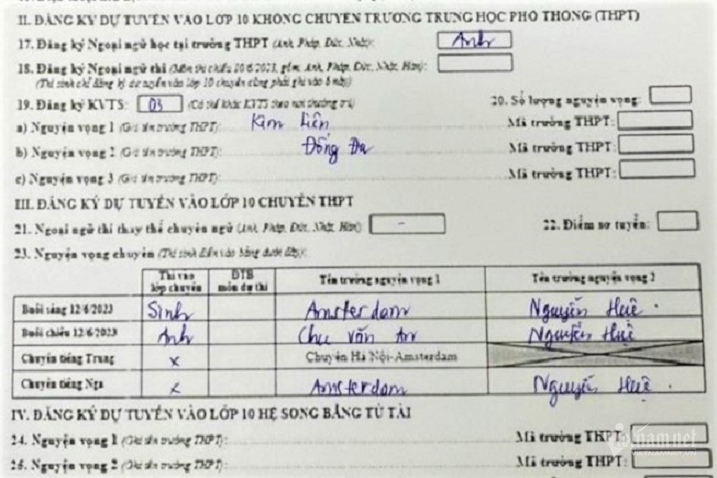 II. ĐĂNG KÝ DỰ TUYỂN VÀO LỚP 10 KHÔNG CHUYÊN TRƯỜNG TRUNG HỌC PHỔ THÔNG (THPT)
17. Đăng ký Ngoại ngữ học tại trường THPT (Anh, Pháp, Đức, Nhật): Anh
18. Đăng ký Ngoại ngữ thi (Môn thi chiều 10/6/2023, gồm: Anh, Pháp, Đức, Nhật, Hàn):
(Thí sinh chỉ đăng ký dự tuyển vào lớp 10 chuyên cũng phải ghi vào ô này)
19. Đăng ký KVTS: 03 (Có thể khác KVTS theo nơi thường trú) 20. Số lượng nguyện vọng:
a) Nguyện vọng 1 (Ghi tên trường THPT): Kim Liên Mã trường THPT:
b) Nguyện vọng 2 (Ghi tên trường THPT): Đống Đa Mã trường THPT:
c) Nguyện vọng 3 (Ghi tên trường THPT): Mã trường THPT:
III. ĐĂNG KÝ DỰ TUYỂN VÀO LỚP 10 CHUYÊN THPT
21. Ngoại ngữ thi thay thế chuyên ngữ (Anh, Pháp, Đức, Nhật, Hàn): - 22. Điểm sơ tuyển:
23. Nguyện vọng chuyên (Thí sinh điền vào bảng dưới đây):
Thi vào lớp chuyên ĐTB môn dự thi Tên trường nguyện vọng 1 Tên trường nguyện vọng 2
Buổi sáng 12/6/2023 Sinh Amsterdam Nguyễn Huệ.
Buổi chiều 12/6/2023 Anh Chu Văn An Nguyễn Huệ
Chuyên tiếng Trung x Chuyên Hà Nội-Amsterdam
Chuyên tiếng Nga x Amsterdam Nguyễn Huệ.
IV. ĐĂNG KÝ DỰ TUYỂN VÀO LỚP 10 HỆ SONG BẰNG TÚ TÀI
24. Nguyện vọng 1 (Ghi tên trường THPT): Mã trường THPT:
25. Nguyện vọng 2 (Ghi tên trường THPT): Mã trường THPT: